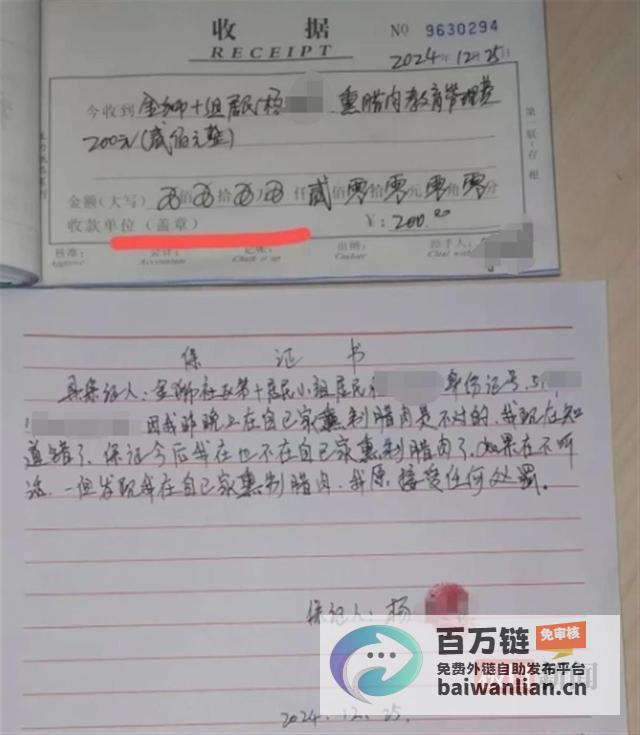 收据
RECEIPT
No 9630294
2024年12月25日
今收到 金狮十组居民杨 熏腊肉教育管理费
200元(贰佰元整)
金额(大写) 佰 拾 万 仟 贰佰零拾零元零角零分
收款单位(盖章)
¥:200.00
核准: 会计: 记帐: 出纳: 经手人:
Approve Accountant Check it up Cashier Deal with
第一联(存根)
保证书
具保证人:金狮社区第十居民小组居民 身份证号:5
因我昨晚上在自己家熏制腊肉是不对的,我现在知
道错了,保证今后我在也不在自己家熏制腊肉了,如果在不听
话,一但发现我在自己家熏制腊肉,我原接受任何处罚。
保证人:杨
2024.12.25.
百万链
免审核
免费外链自助发布平台
baiwanlian.cn
新闻